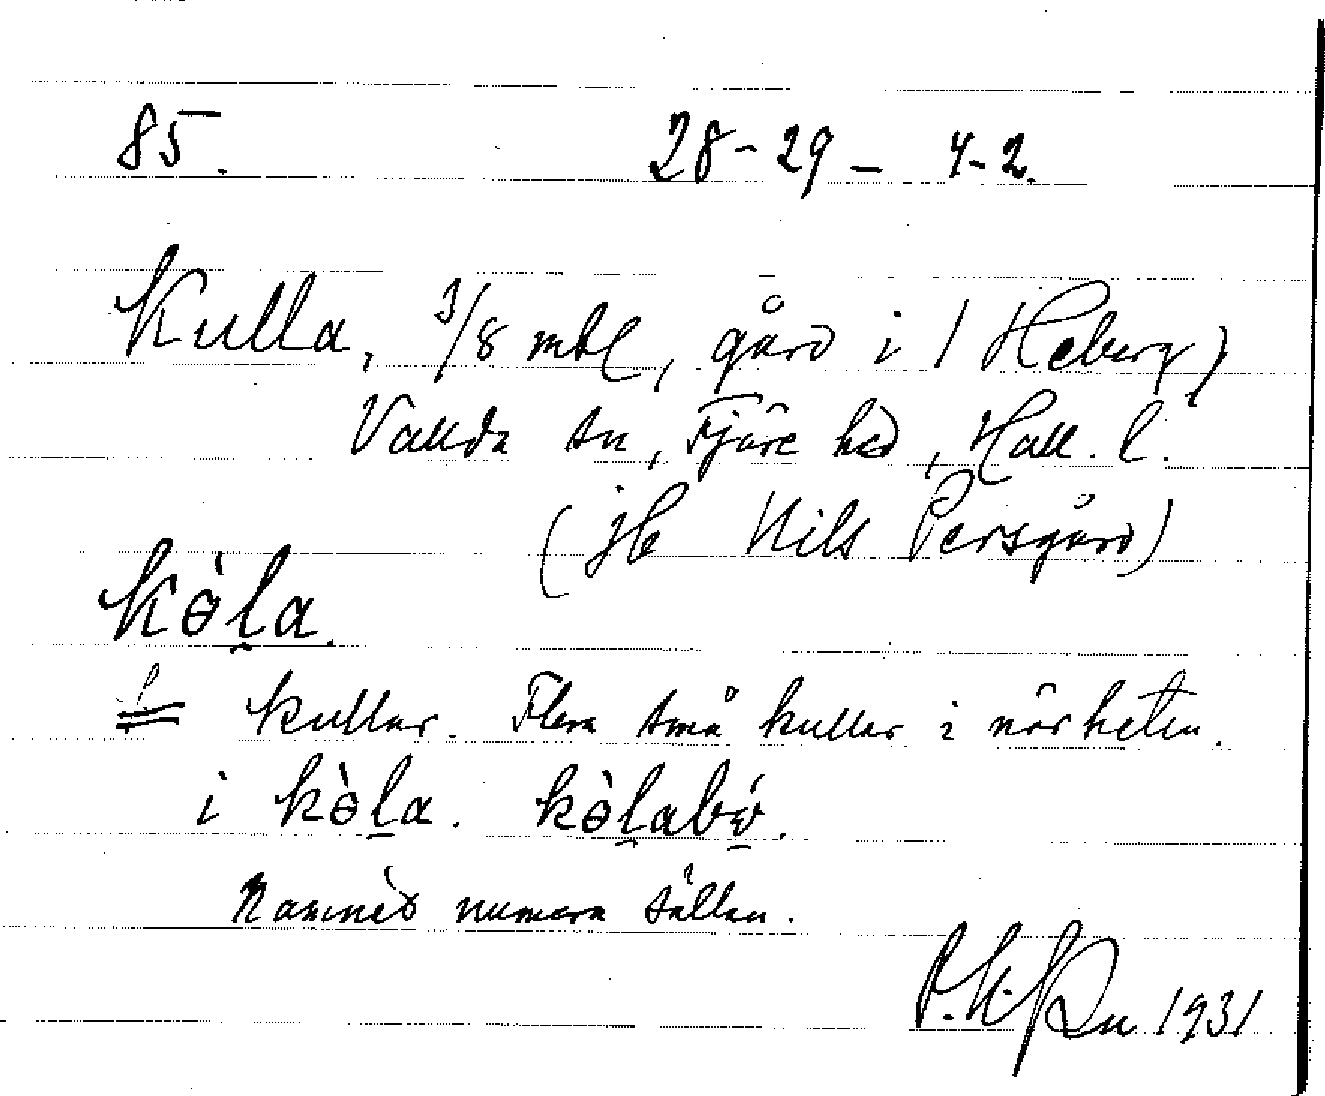 85. 28-29 - 4-2.
Kulla, 3/8 mtl, gård i 1 Heberg,
Vallda sn, Fjäre hd, Hall. l.
(jfr Nils Persgård)
kə̀l̠a.
= kullar. Flera små kullar i närheten.
i kə̀l̠a. kə̀l̠abó̠.
Namnet numera sällan.
1931